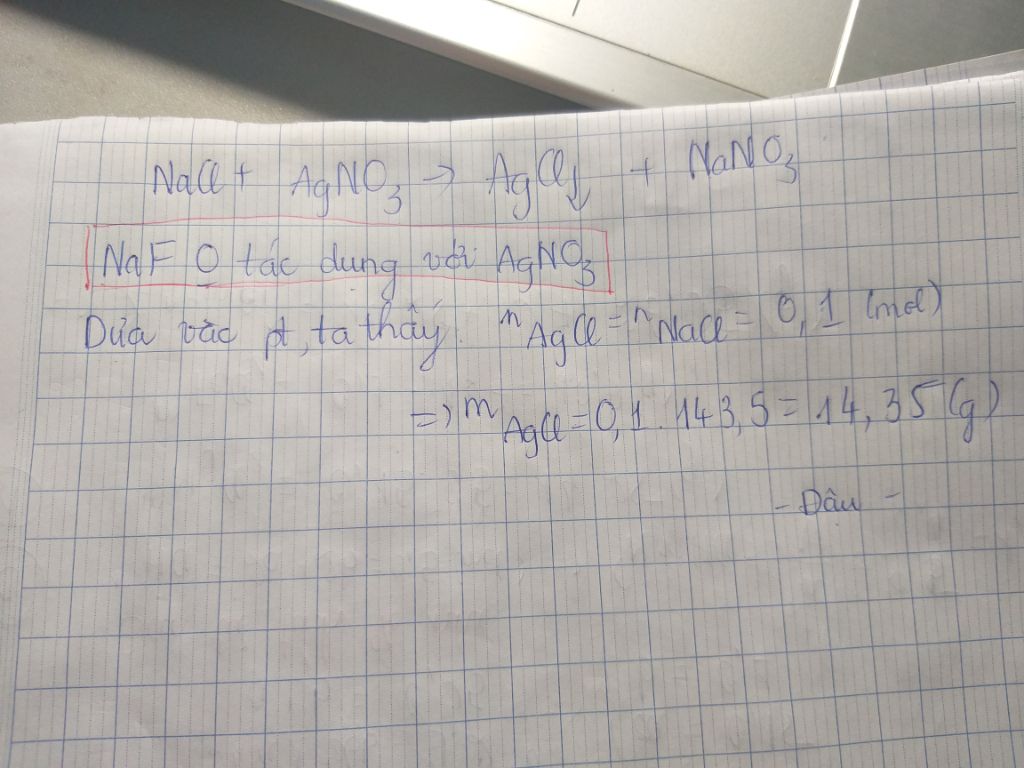 NaCl + AgNO3 → AgCl↓ + NaNO3
NaF O tác dụng với AgNO3
Dựa vào pt, ta thấy. nAgCl = nNaCl = 0,1 (mol)
=> mAgCl = 0,1.143,5 = 14,35 (g)
- Dâu -